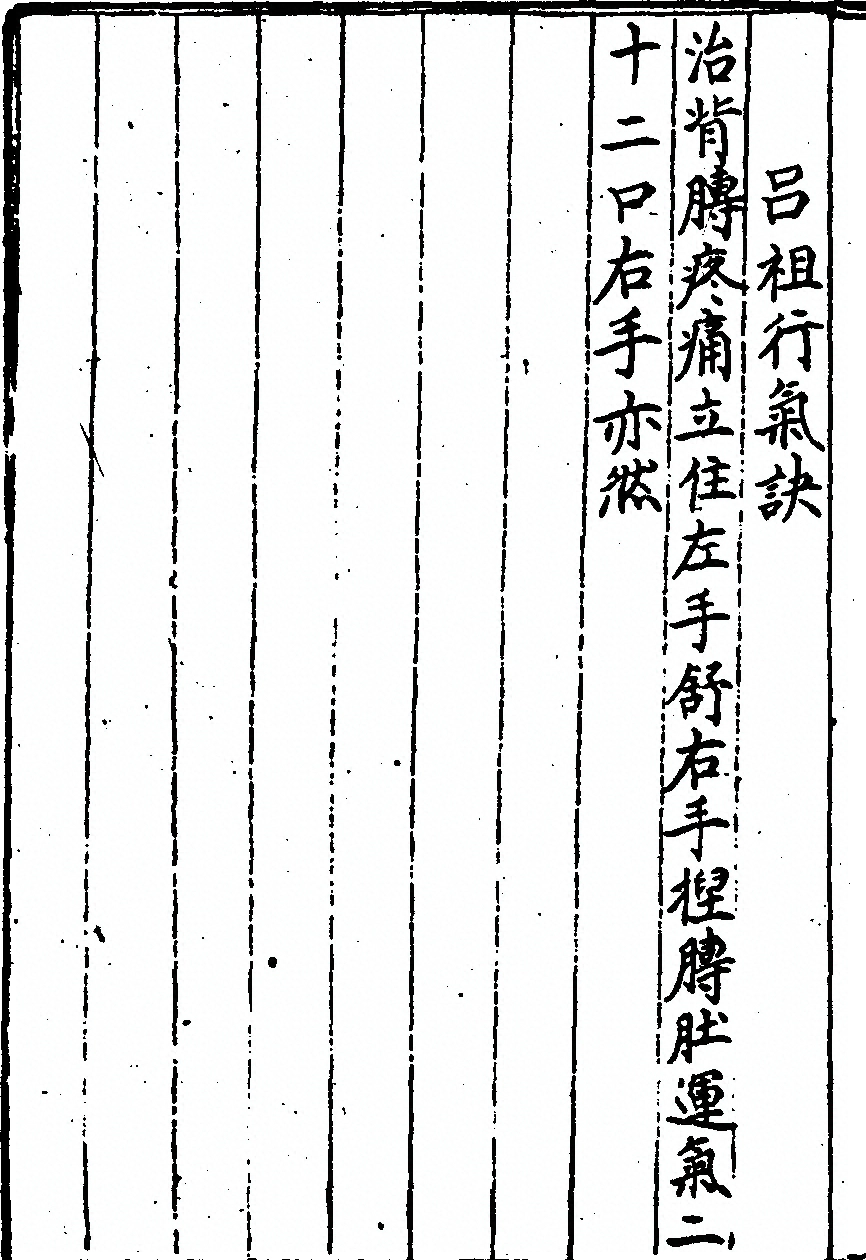 呂祖行氣訣
治背膊疼痛立住左手舒右手捏膊肚運氣二
十二口右手亦然